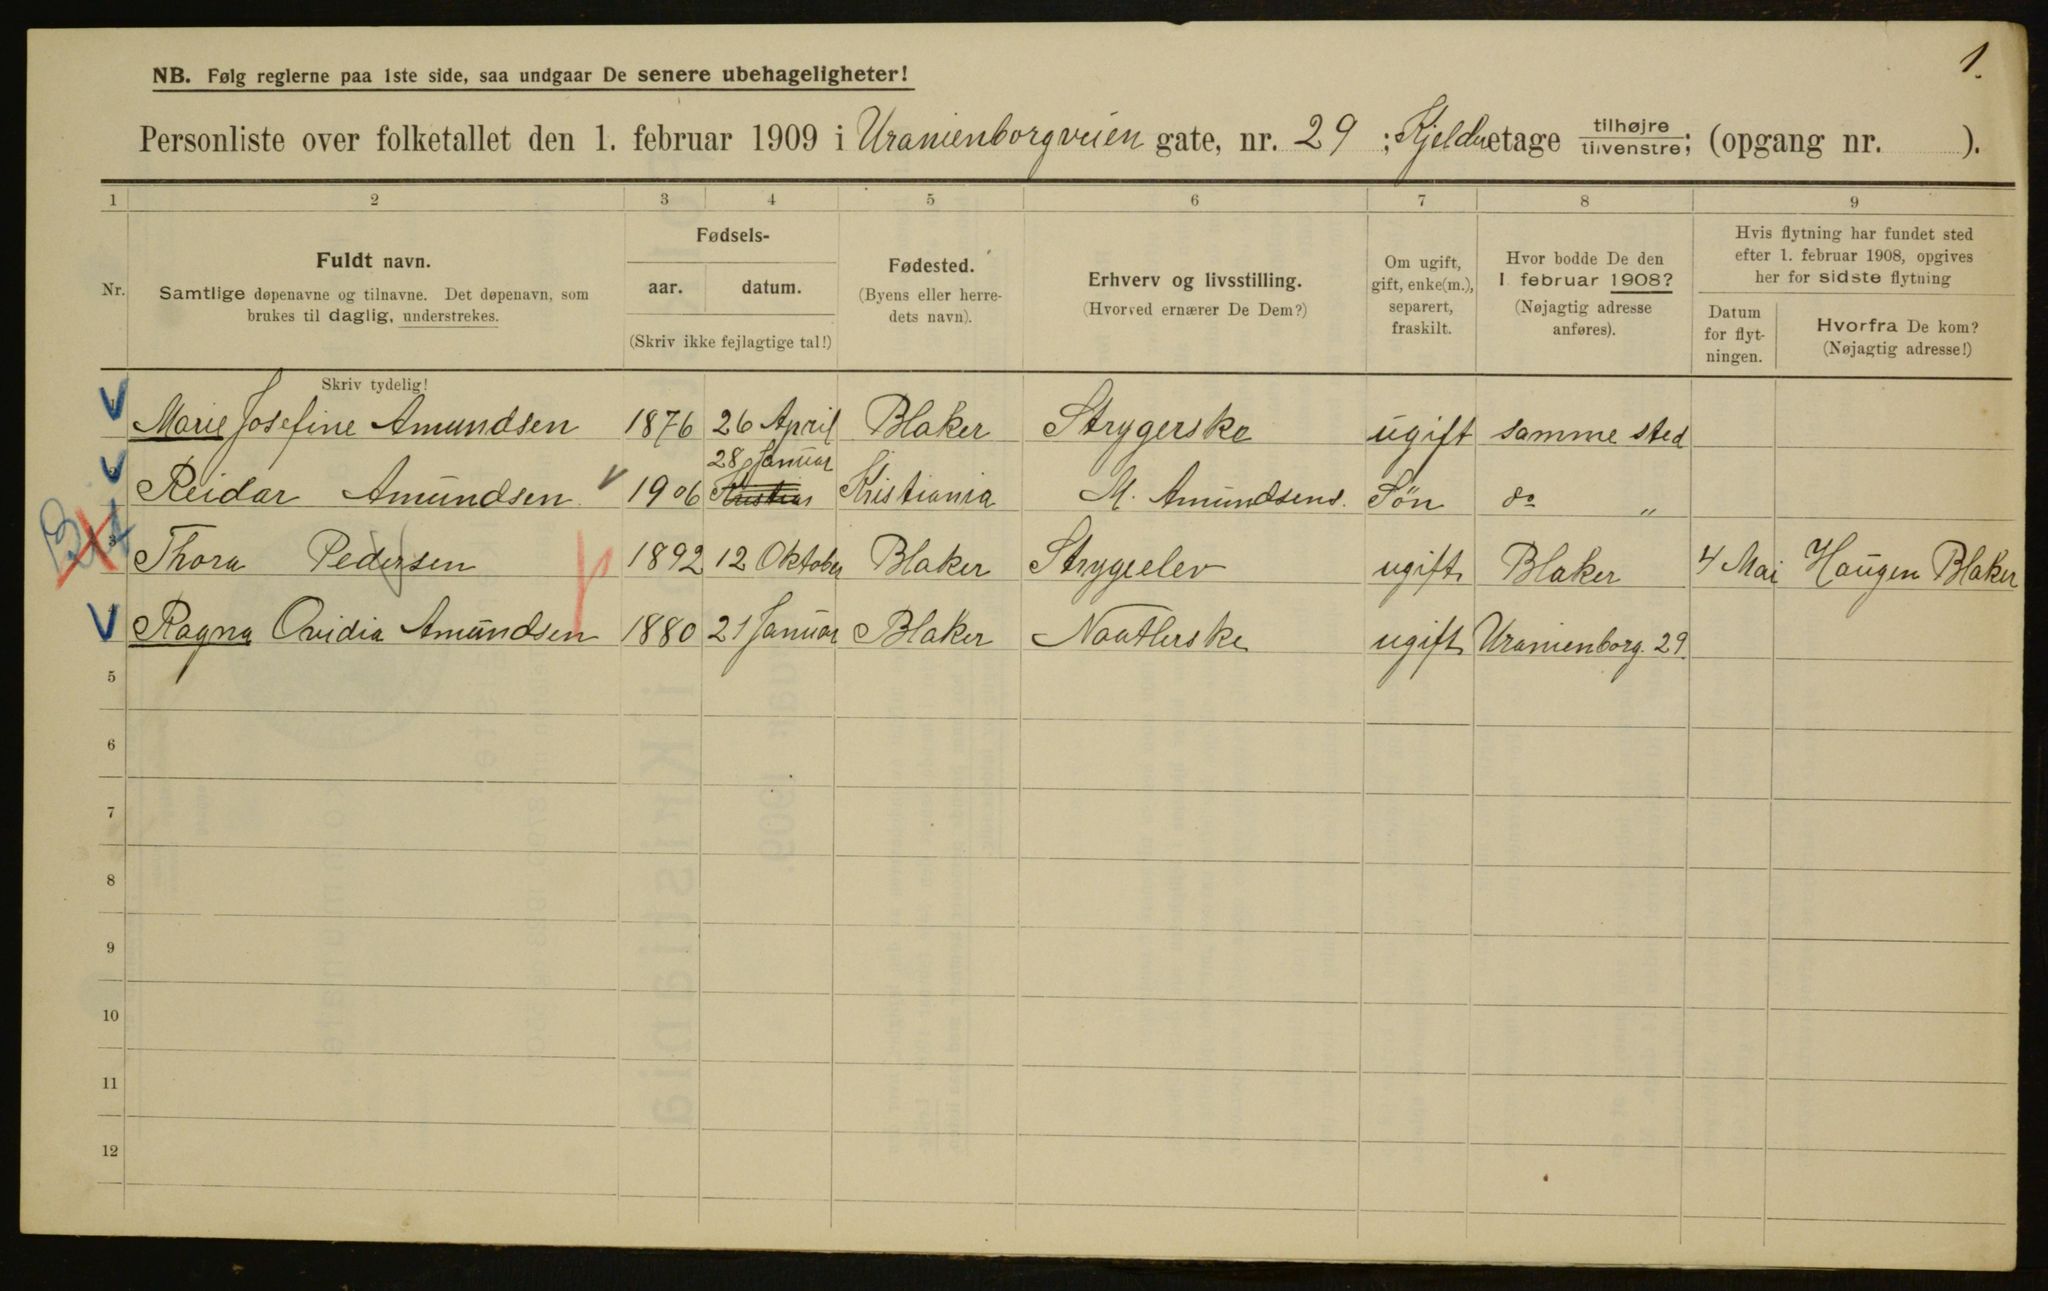 1.
NB. Følg reglerne paa 1ste side, saa undgaar De senere ubehageligheter!
Personliste over folketallet den 1. februar 1909 i Uranienborgveien gate, nr. 29 ; Kjelder etage tilhøjre tilvenstre; (opgang nr. ).
1 2 3 4 5 6 7 8 9
Nr.
Fuldt navn.
Samtlige døpenavne og tilnavne. Det døpenavn, som
brukes til daglig, understrekes.
Skriv tydelig!
Fødsels-
aar. datum.
(Skriv ikke fejlagtige tal!)
Fødested.
(Byens eller herre-
dets navn).
Erhverv og livsstilling.
(Hvorved ernærer De Dem?)
Om ugift,
gift, enke(m.),
separert,
fraskilt.
Hvor bodde De den
1 februar 1908?
(Nøjagtig adresse
anføres).
Hvis flytning har fundet sted
efter 1. februar 1908, opgives
her for sidste flytning
Datum
for flyt-
ningen.
Hvorfra De kom?
(Nøjagtig adresse!)
1 Marie Josefine Amundsen 1876 26 April Blaker Strygerske ugift samme sted
2 Reidar Amundsen 1906 28 Januar Kristiania M. Amundsens Søn do „
3 Thora Pedersen 1892 12 Oktober Blaker Strygeelev ugift Blaker 4 Mai Haugen Blaker
Ragna Ovidia Amundsen 1880 21 Januar Blaker Naatlerske ugift Uranienborg. 29.
5
6
7
8
9
10
11
12